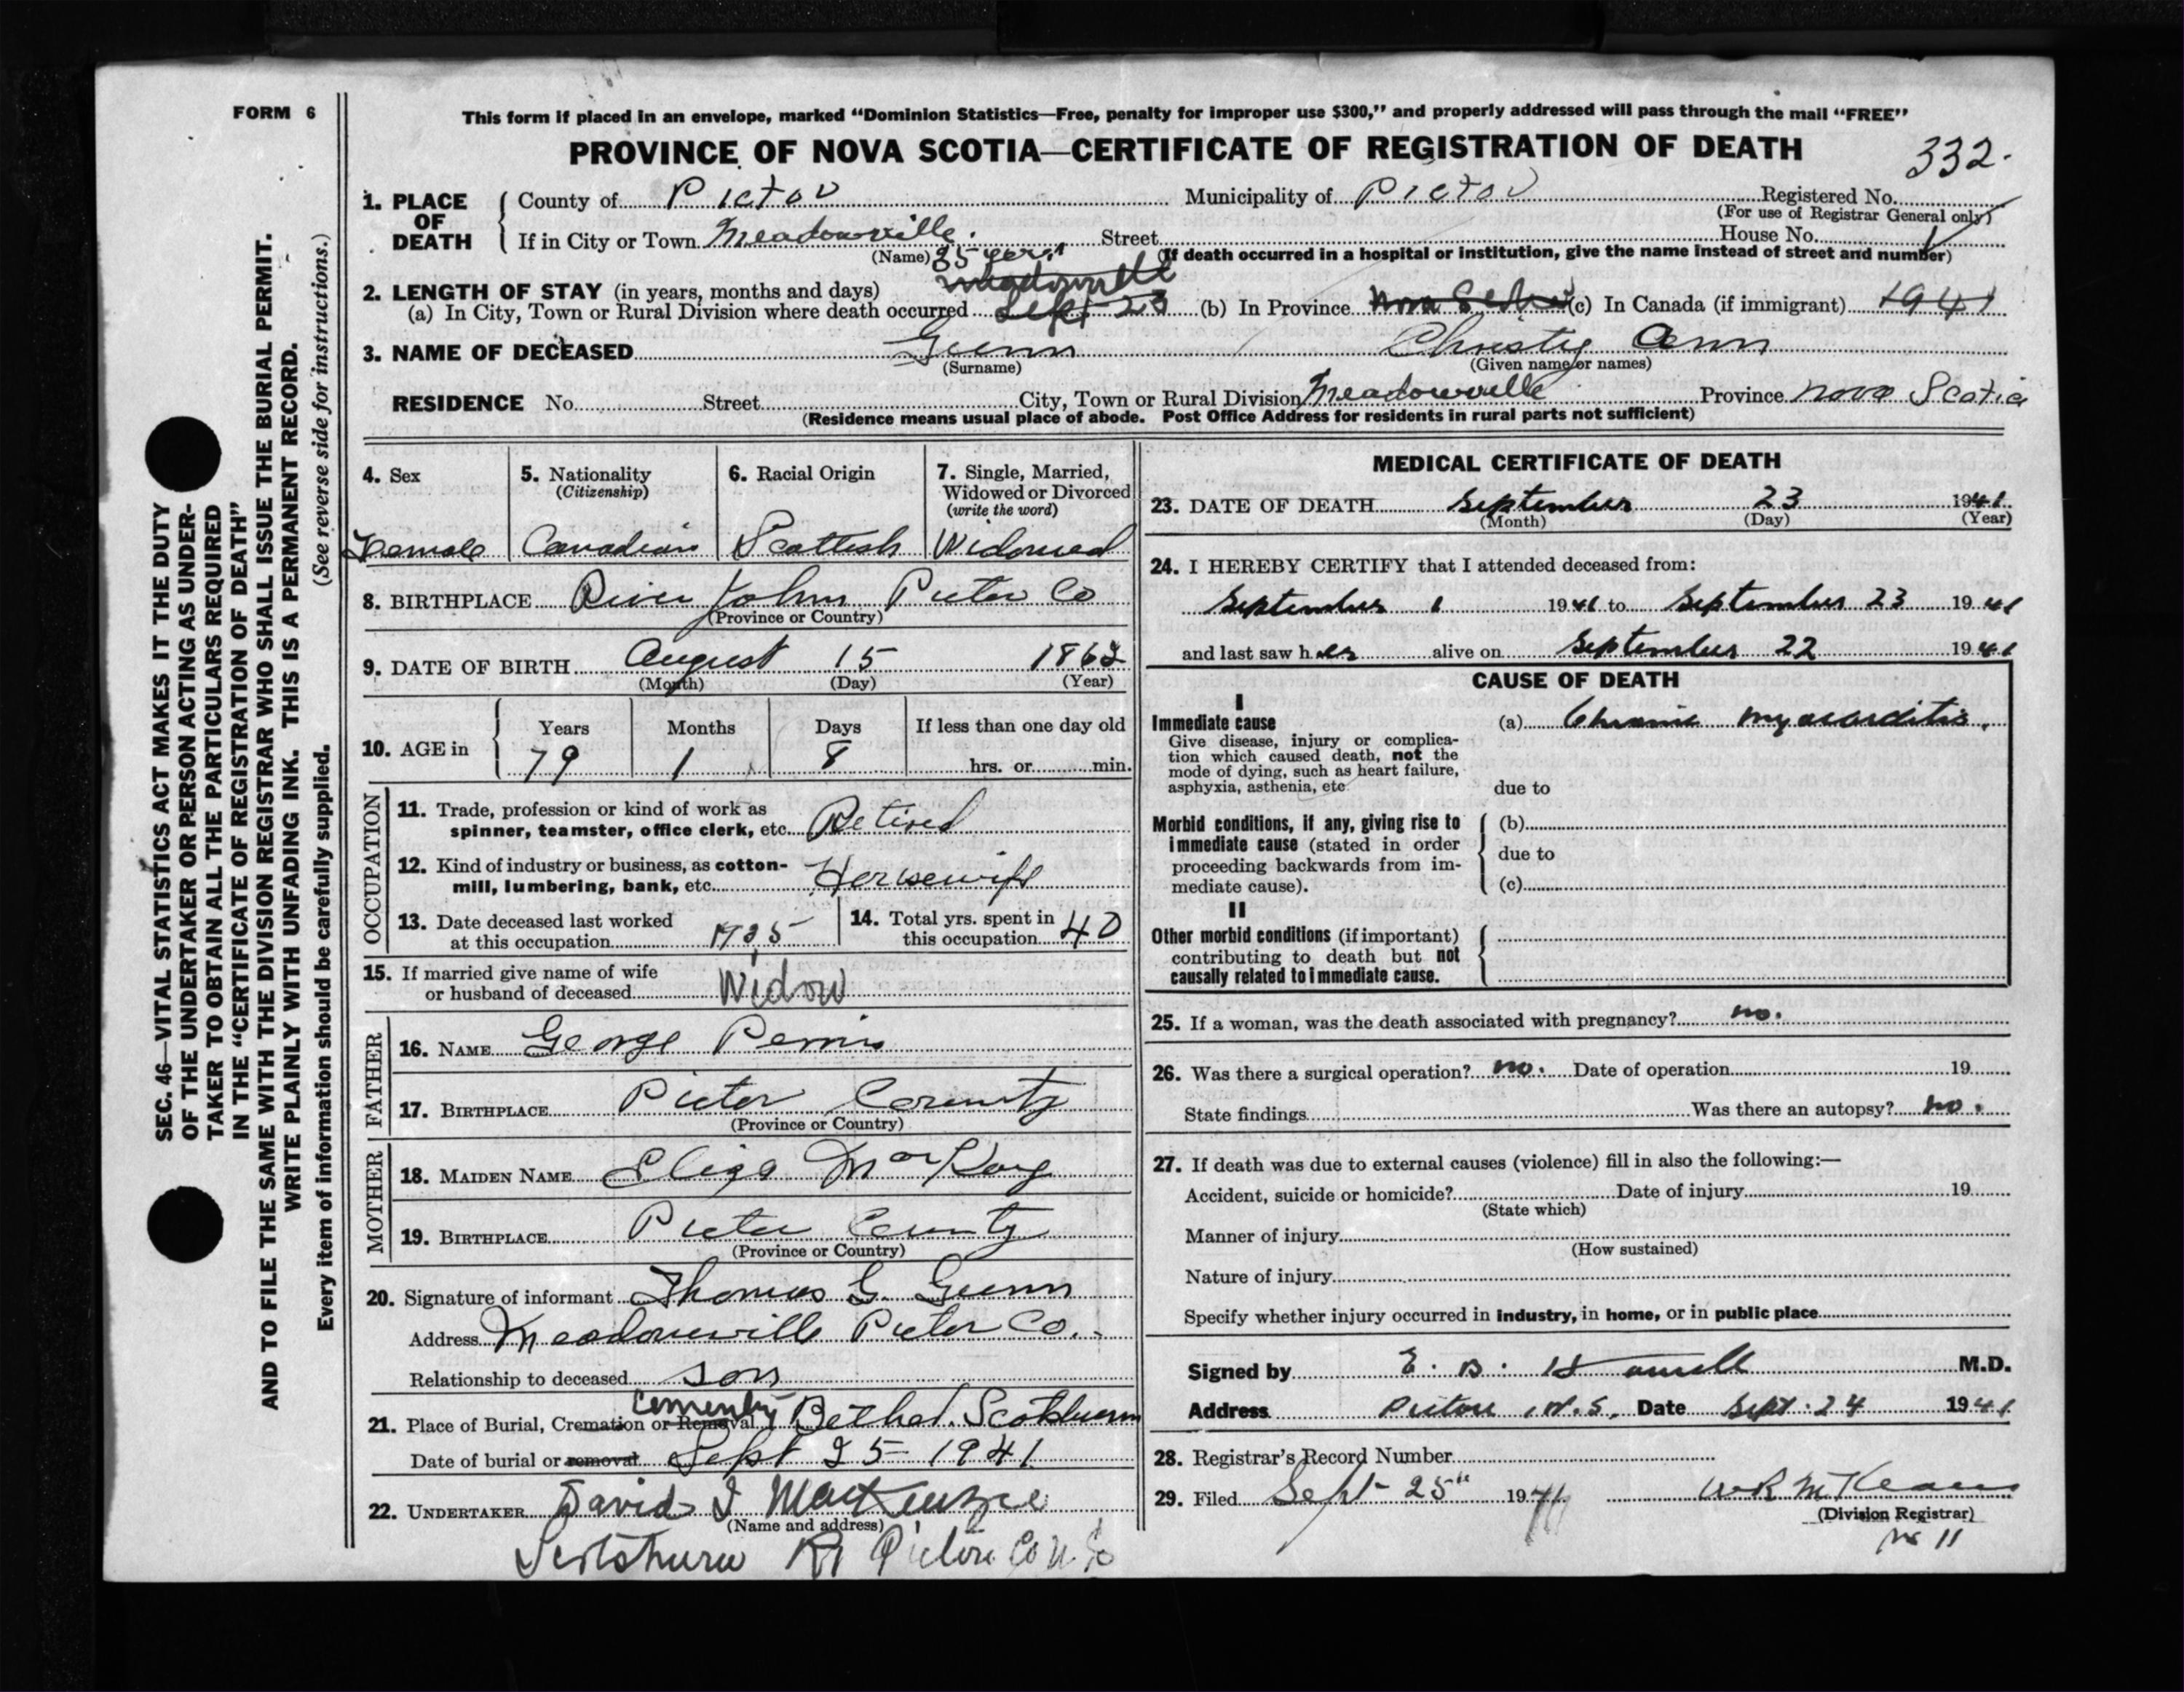 FORM 6
This form if placed in an envelope, marked “Dominion Statistics—Free, penalty for improper use $300,” and properly addressed will pass through the mail “FREE”
PROVINCE OF NOVA SCOTIA—CERTIFICATE OF REGISTRATION OF DEATH
332.
1. PLACE OF DEATH
County of Pictou Municipality of Pictou Registered No.
(For use of Registrar General only)
If in City or Town Meadowville. Street House No.
(Name) 35 years (If death occurred in a hospital or institution, give the name instead of street and number)
Meadowville
2. LENGTH OF STAY (in years, months and days)
(a) In City, Town or Rural Division where death occurred Sept 23 (b) In Province Nova Scotia (c) In Canada (if immigrant) 1941
3. NAME OF DECEASED Gunn Christy Ann
(Surname) (Given name or names)
RESIDENCE No. Street City, Town or Rural Division Meadowville Province Nova Scotia
(Residence means usual place of abode. Post Office Address for residents in rural parts not sufficient)
4. Sex 5. Nationality 6. Racial Origin 7. Single, Married,
(Citizenship) Widowed or Divorced
(write the word)
Female Canadian Scottish Widowed
8. BIRTHPLACE River John Pictou Co
(Province or Country)
9. DATE OF BIRTH August 15 1862
(Month) (Day) (Year)
10. AGE in Years Months Days If less than one day old
79 1 8 hrs. or min.
OCCUPATION
11. Trade, profession or kind of work as
spinner, teamster, office clerk, etc. Retired
12. Kind of industry or business, as cotton-
mill, lumbering, bank, etc. Housewife
13. Date deceased last worked
at this occupation 1935
14. Total yrs. spent in
this occupation 40
15. If married give name of wife
or husband of deceased Widow
FATHER
16. NAME George
17. BIRTHPLACE Pictou County
(Province or Country)
MOTHER
18. MAIDEN NAME Eliza MacKay
19. BIRTHPLACE Pictou County
(Province or Country)
20. Signature of informant Thomas G. Gunn
Address Meadowville Pictou Co.
Relationship to deceased son
Cemetery
21. Place of Burial, Cremation or Removal Bethel. Scotsburn
Date of burial or removal Sept 25 - 1941
22. UNDERTAKER David I MacKenzie
(Name and address)
Scotsburn R1 Pictou Co N.S
MEDICAL CERTIFICATE OF DEATH
23. DATE OF DEATH September 23 1941
(Month) (Day) (Year)
24. I HEREBY CERTIFY that I attended deceased from:
September 1 1941 to September 23 1941
and last saw her alive on September 22 1941
CAUSE OF DEATH
I
Immediate cause (a) Chronic myocarditis.
Give disease, injury or complica-
tion which caused death, not the
mode of dying, such as heart failure,
asphyxia, asthenia, etc
due to
Morbid conditions, if any, giving rise to (b)
immediate cause (stated in order
proceeding backwards from im- due to
mediate cause). (c)
II
Other morbid conditions (if important)
contributing to death but not
causally related to immediate cause.
25. If a woman, was the death associated with pregnancy? no.
26. Was there a surgical operation? no. Date of operation 19
State findings Was there an autopsy? no.
27. If death was due to external causes (violence) fill in also the following:—
Accident, suicide or homicide? Date of injury 19
(State which)
Manner of injury
(How sustained)
Nature of injury
Specify whether injury occurred in industry, in home, or in public place
Signed by E. B. M.D.
Address Pictou, N.S. Date Sept. 24 1941
28. Registrar's Record Number
29. Filed Sept - 25" 1941 W R McKean
(Division Registrar)
No 11
SEC. 46—VITAL STATISTICS ACT MAKES IT THE DUTY
OF THE UNDERTAKER OR PERSON ACTING AS UNDER-
TAKER TO OBTAIN ALL THE PARTICULARS REQUIRED
IN THE “CERTIFICATE OF REGISTRATION OF DEATH”
AND TO FILE THE SAME WITH THE DIVISION REGISTRAR WHO SHALL ISSUE THE BURIAL PERMIT.
WRITE PLAINLY WITH UNFADING INK. THIS IS A PERMANENT RECORD.
Every item of information should be carefully supplied. (See reverse side for instructions.)